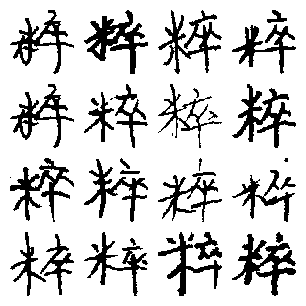 粹粹粹粹
粹粹粹粹
粹粹粹粹
粹粹粹粹